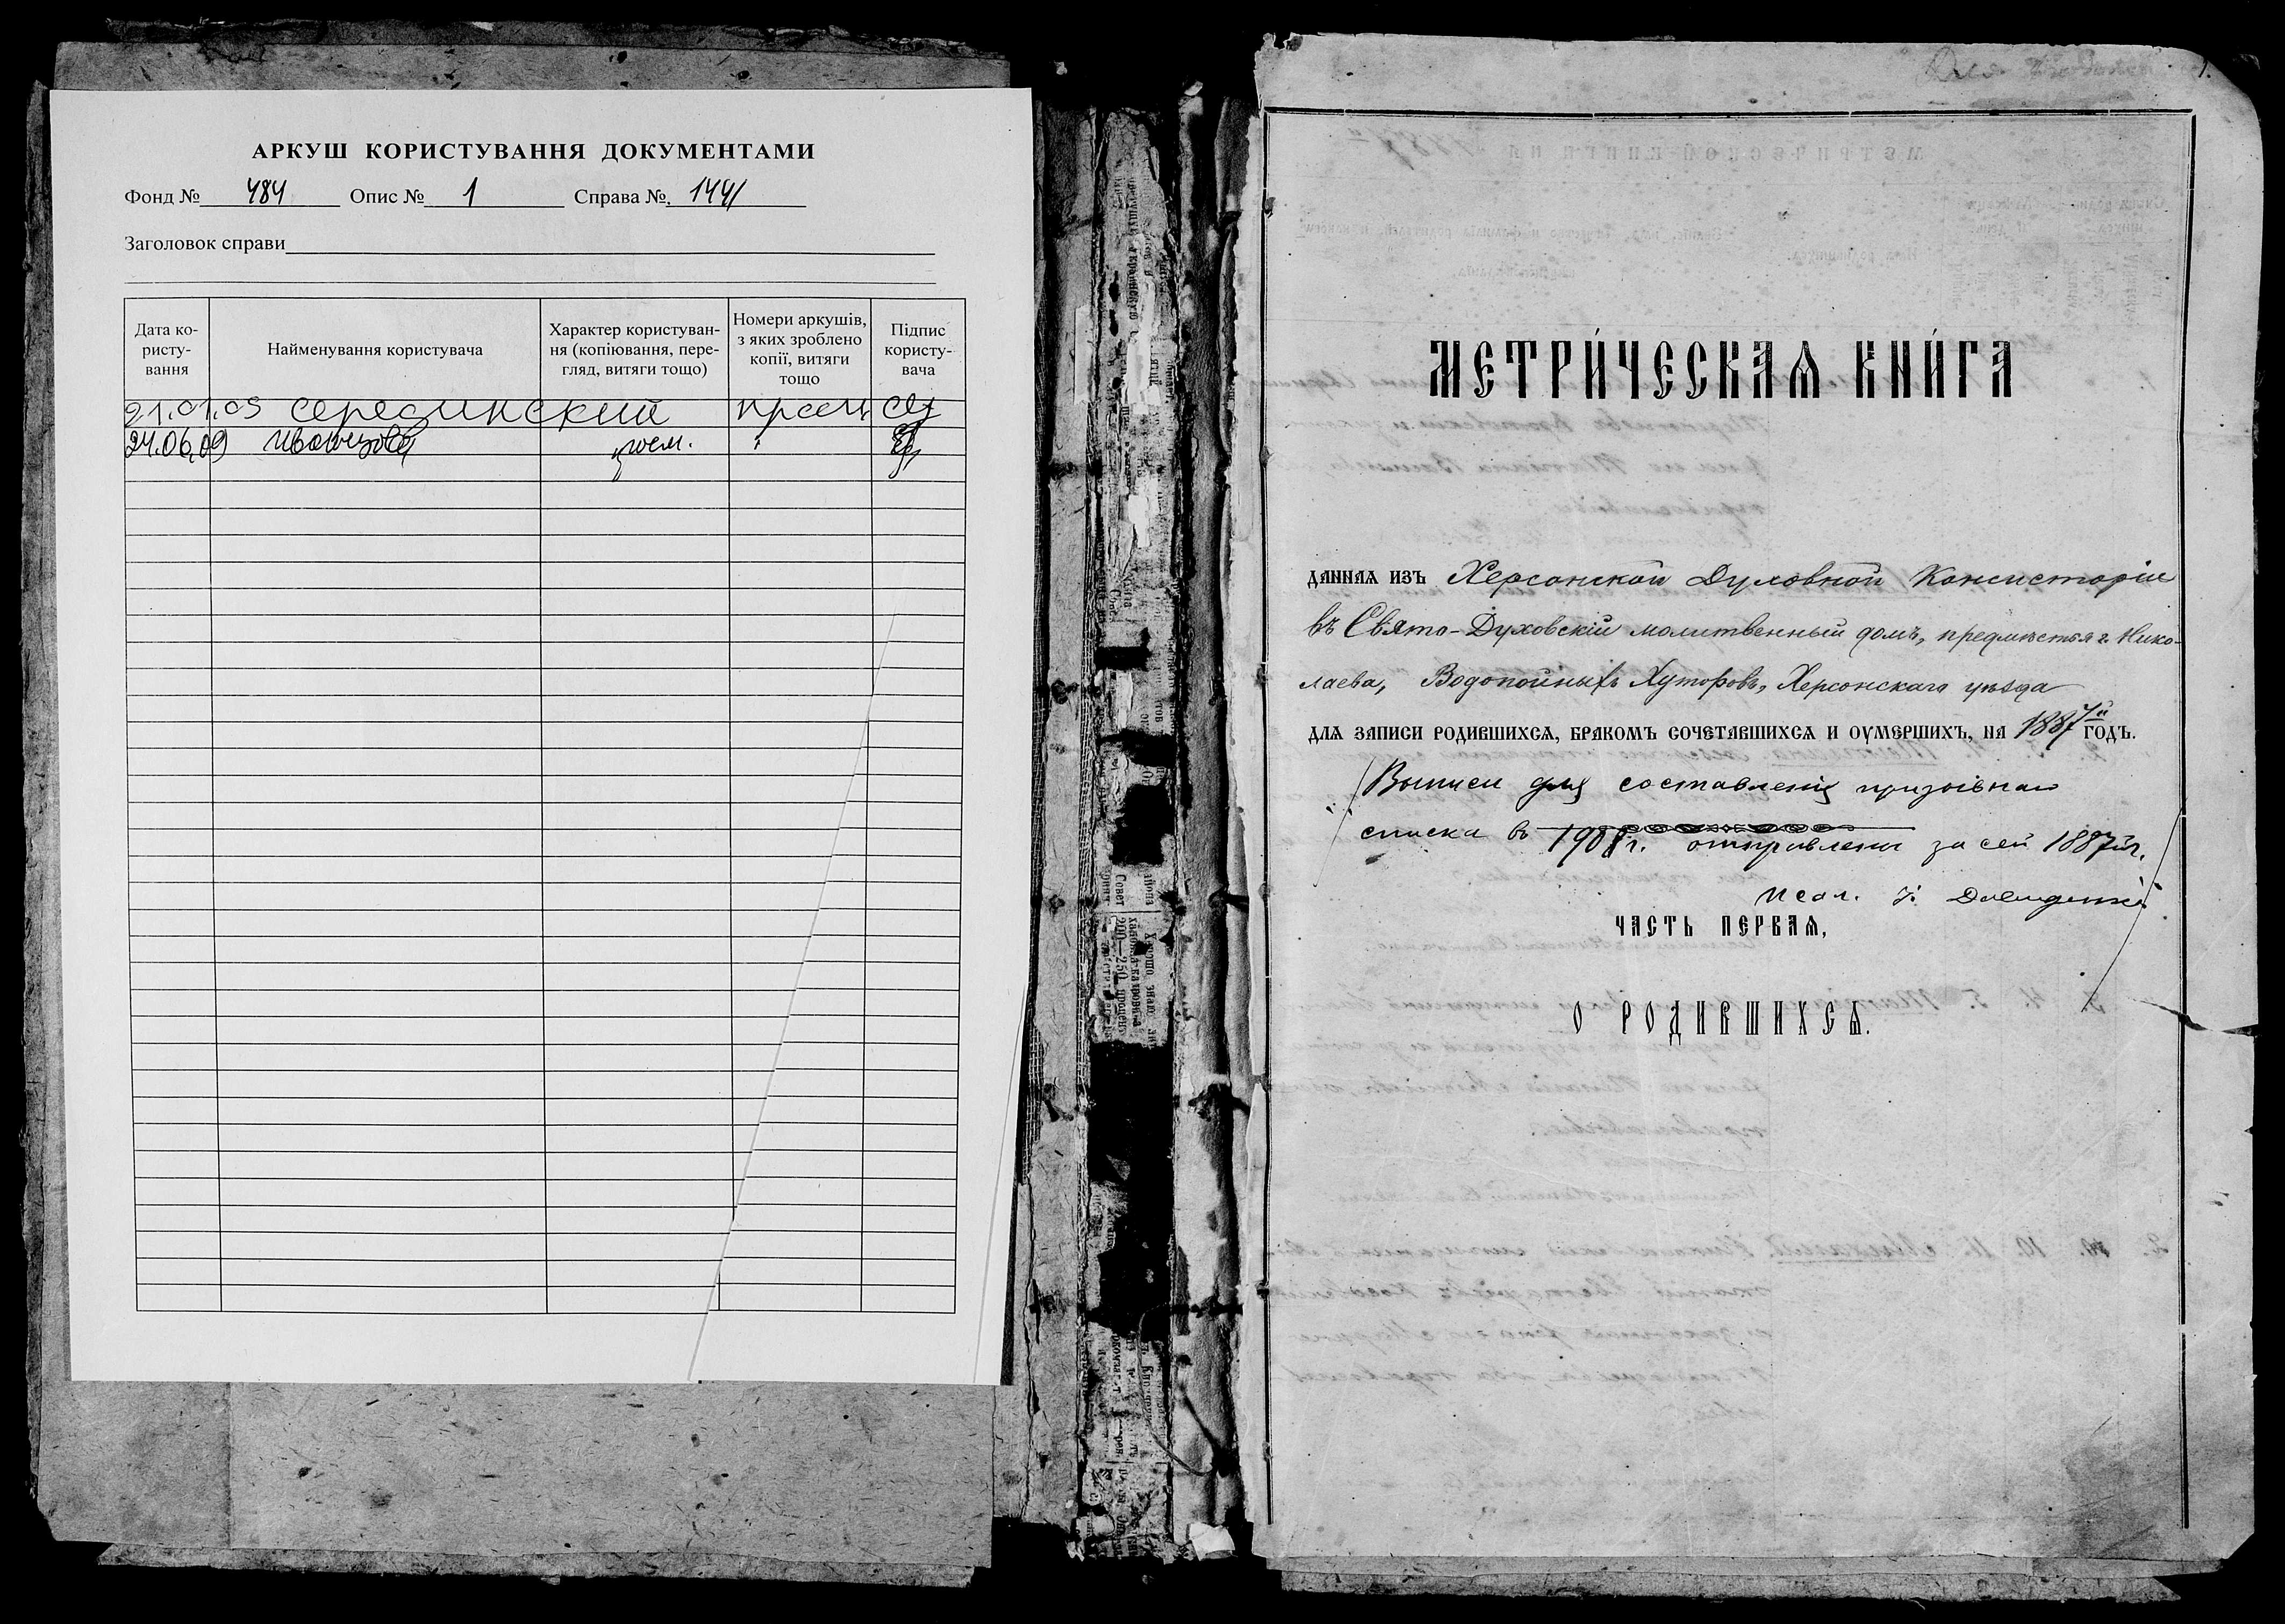 АРКУШ КОРИСТУВАННЯ ДОКУМЕНТАМИ
Фонд № 484 Опис № 1 Справа № 1441
Заголовок справи
Дата ко-
ристу-
вання
Найменування користувача
Характер користуван-
ня (копіювання, пере-
гляд, витяги тощо)
Номери аркушів,
з яких зроблено
копії, витяги
тощо
Підпис
користу-
вача
21.01.09 Серединский
24.06.09
1.
МЕТРИ́ЧЕСКАѦ КНИ́ГА
ДАННАѦ ИЗЪ Херсонской Духовной Консисторіи
въ Свято-Духовскій молитвенный домъ, предмѣстья г. Нико-
лаева, Водопойныхъ Хуторовъ, Херсонскаго уѣзда
ДЛѦ ЗАПИСИ РОДИВШИХСѦ, БРАКОМЪ СОЧЕТАВШИХСѦ И ОУМЕРШИХЪ, НА 1887й ГОДЪ.
Выписи для составленія призывнаго
списка въ 1908 г. отправлены за сей 1887й г.
Псал. І.
ЧАСТЬ ПЕРВАѦ,
О РОДИВШИХСѦ.